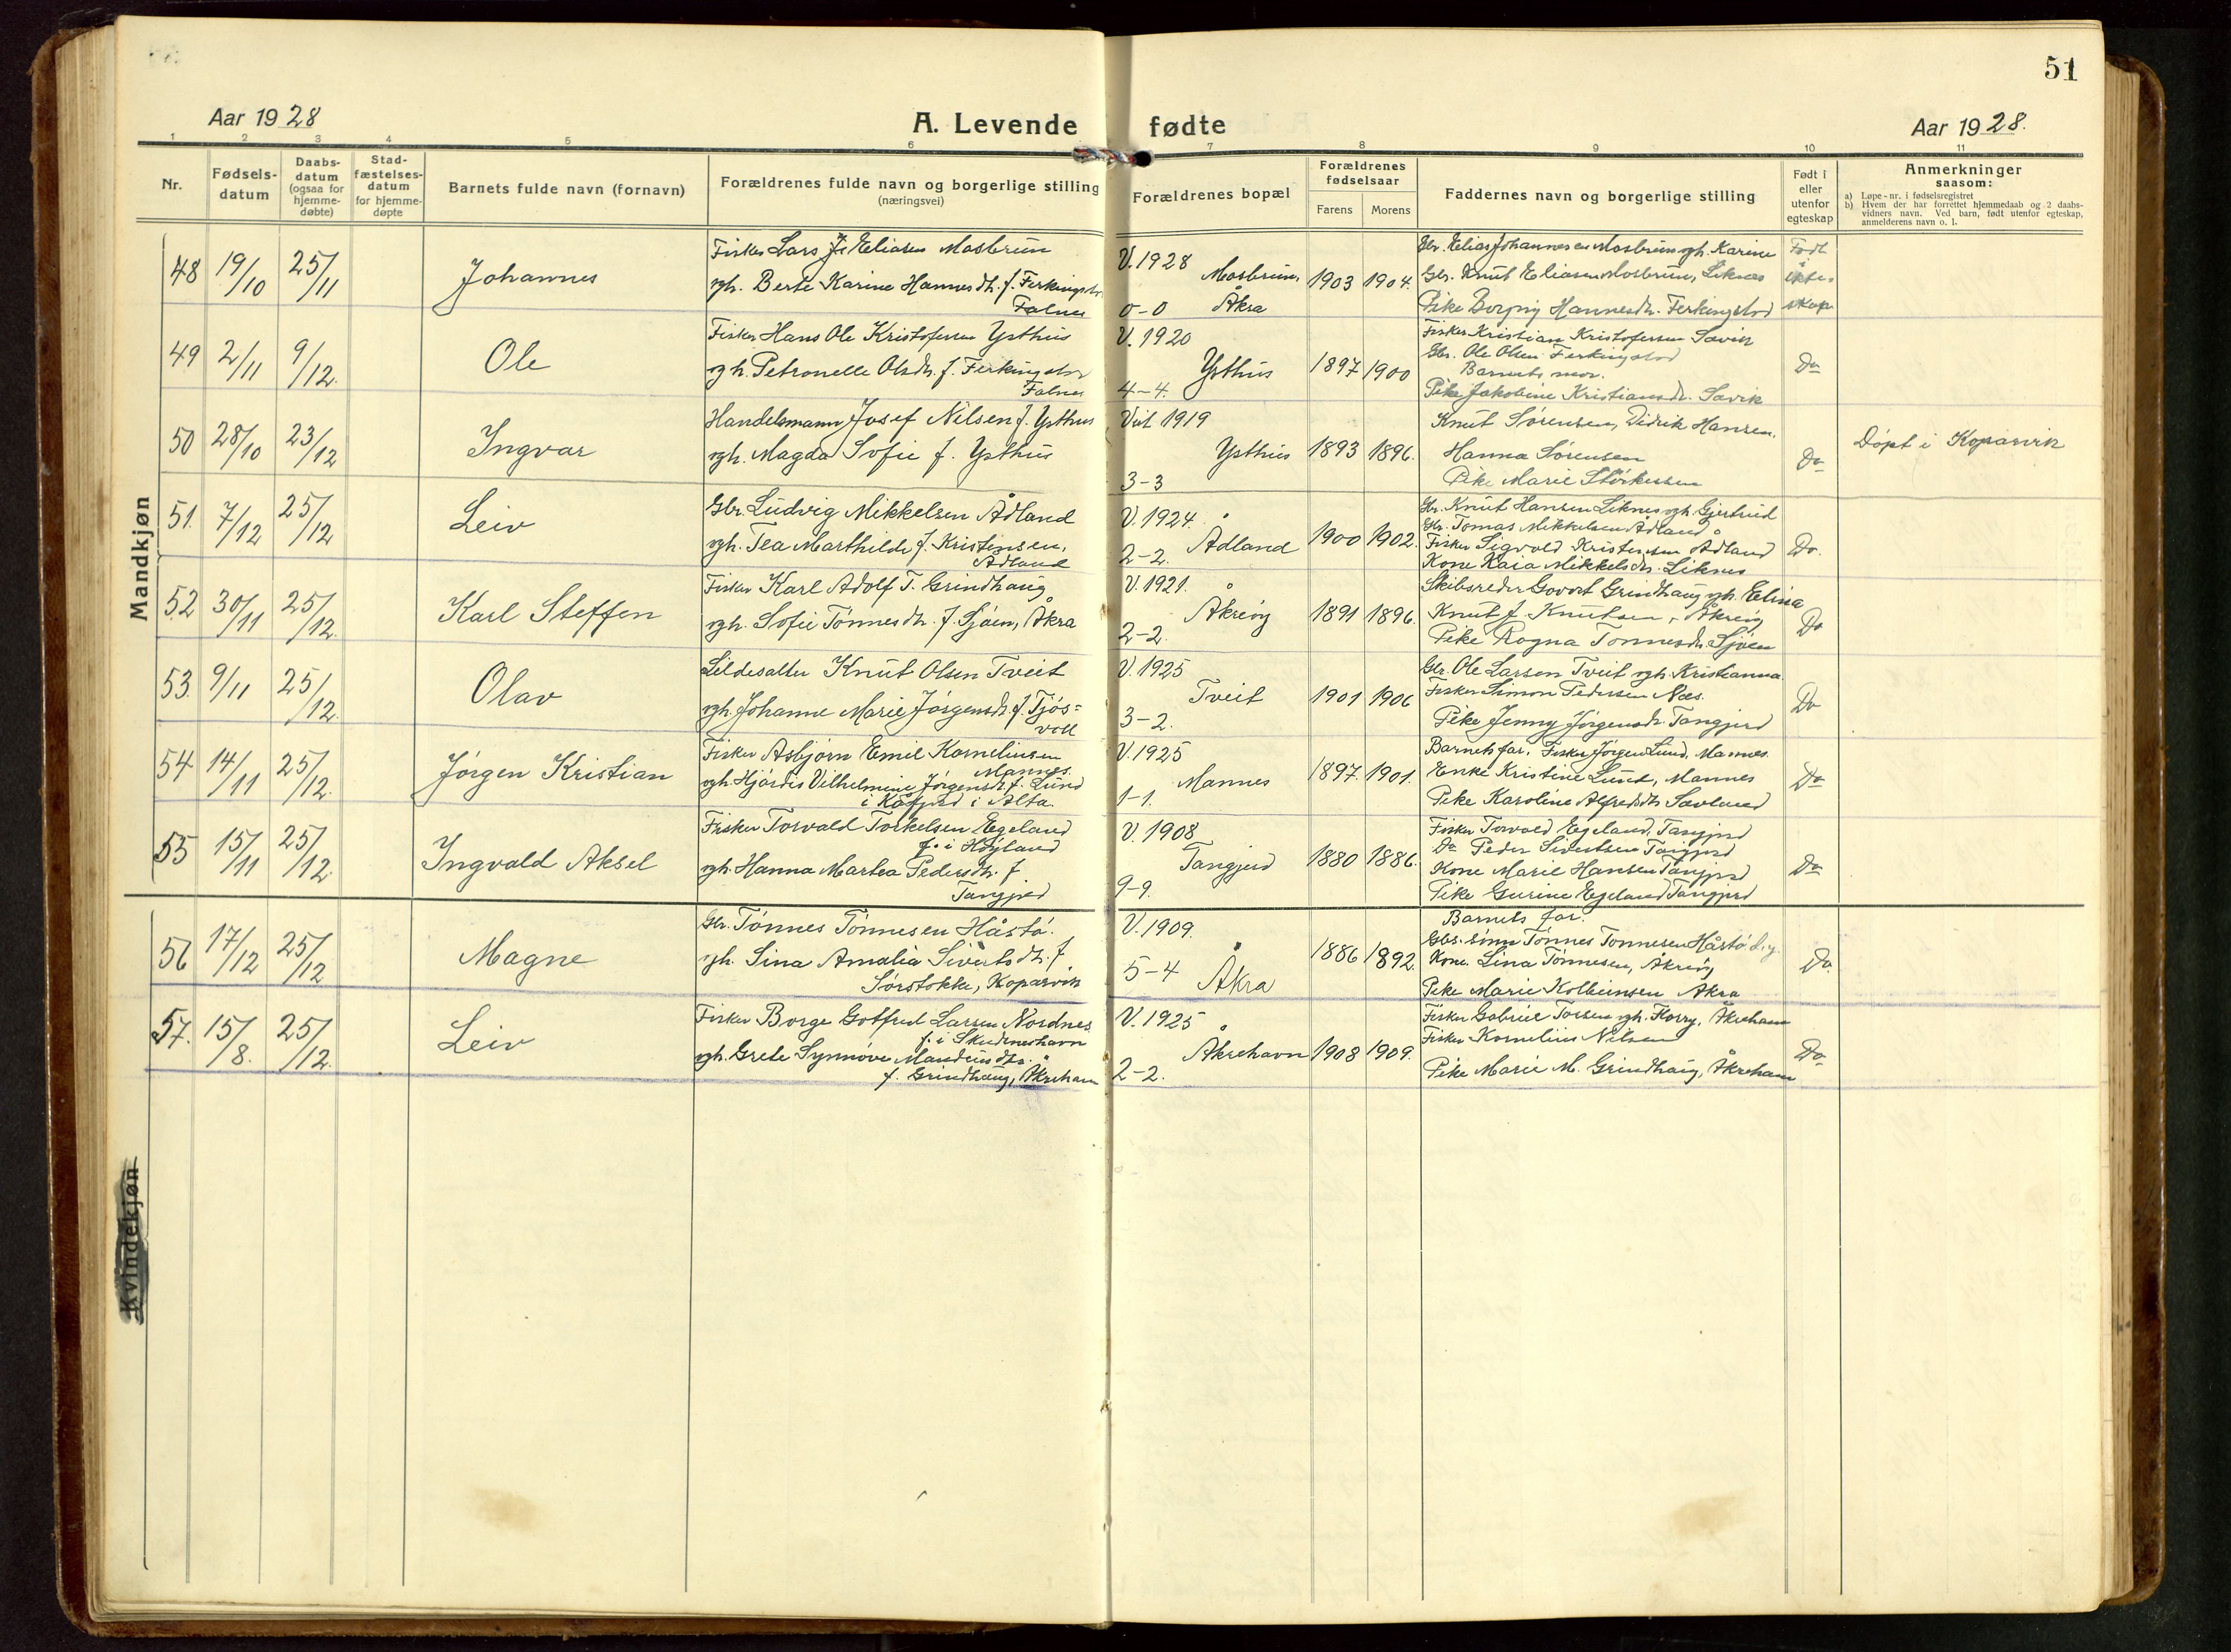 51
Aar 1928
A. Levende fødte
Aar 1928.
1 2 3 4 5 6 7 8 9 10 11
Nr.
Fødsels-
datum
Daabs-
datum
(ogsaa for
hjemme-
døbte)
Stad-
fæstelses-
datum
for hjemme-
døpte
Barnets fulde navn (fornavn)
Forældrenes fulde navn og borgerlige stilling
(næringsvei)
Forældrenes bopæl
Forældrenes
fødselsaar
Farens Morens
Faddernes navn og borgerlige stilling
Født i
eller
utenfor
egteskap
Anmerkninger
saasom:
a) Løpe-nr. i fødselsregistret
b) Hvem der har forrettet hjemmedaab og 2 daabs-
vidners navn. Ved barn, født utenfor egteskap,
anmelderens navn o. l.
Mandkjøn
48 19/10 25/11 Johannes
Fisker Lars Eliasen Mosbrun
og h. Berte Karine Hannesdtr. f. Ferkingstad
Falnes
V. 1928
Mosbrun,
0-0 Åkra
1903 1904.
Gbr. Elias Johannesen Mosbrun og h. Karine
Gbr. Knut Eliasen Mosbrun, Liknes
Pike Borgny Hannesdtr. Ferkingstad
Født
i
ekte-
skap
49 2/11 9/12. Ole
Fisker Hans Ole Kristofersen Ysthus
og h. Petronelle Olsdtr. f. Ferkingstad
Falnes
V. 1920
Ysthus
4-4.
1897 1900
Fisker Kristian Kristofersen Sævik
Gbr. Ole Olsen Ferkingstad
Barnets mor.
Pike Jakobine Kristiansdtr. Sævik
Do
50 28/10 23/12 Ingvar
Handelsmann Josef Nilsen f. Ysthus
og h. Magda Sofie f. Ysthus
Viet 1919
Ysthus
3-3
1893 1896.
Knut Sørensen, Didrik Hansen,
Hanna Sørensen
Pike Marie Størkersen
Do
Døpt i Kopervik
51. 7/12 25/12 Leiv
Gbr. Ludvig Mikkelsen Ådland
og h. Tea Marthilde f. Kristensen,
Ådland
V. 1924
Ådland
2-2.
1900 1902.
Gbr. Knut Hansen Liknes og h. Gjertrud
Gbr. Tomas Mikkelsen Ådland
Fisker Sigvald Kristensen Ådland
Kone Kaia Mikkelsdtr. Liknes
Do.
52 30/11 25/12. Karl Steffen
Fisker Karl Adolf T. Grindhaug
og h. Sofie Tønnesdtr. f. Sjøen, Åkra
V. 1921.
Åkreøy
2-2.
1891 1896.
Skibsreder Govert Grindhaug og h. Elina
Knut J. Knutsen, Åkreøy
Pike Ragna Tønnesdtr. Sjøen
Do
53. 9/11 25/12. Olav
Sildesalter Knut Olsen Tveit
og h. Johanne Marie Jørgensdtr. f. Tjøs-
voll
V. 1925
Tveit
3-2.
1901 1906
Gbr. Ole Larsen Tveit og h. Kristianna
Fisker Simon Pedersen Næs.
Pike Jenny Jørgensdtr. Tangjerd
Do
54. 14/11 25/12. Jørgen Kristian
Fisker Asbjørn Emil Korneliussen
Mannes.
og h. Hjørdis Vilhelmine Jørgensdtr. f. Lund
i Kåfjord i Alta.
V. 1925
Mannes
1-1.
1897. 1901.
Barnets far. Fisker Jørgen Lund, Mannes.
Enke Kristine Lund, Mannes
Pike Karoline Alfredsdtr Sævland
Do
55 15/11 25/12. Ingvald Aksel
Fisker Torvald Torkelsen Egeland
f. i Høyland
og h. Hanna Martea Pedersdtr. f.
Tangjerd
V. 1908
Tangjerd
9-9.
1880 1886.
Fisker Torvald Egeland, Tangjerd
Do Peder Sivertsen Tangjerd
Kone Marie Hansen Tangjerd
Pike Gurine Egeland Tangjerd
Do
56 17/12 25/12 Magne
Gbr. Tønnes Tønnesen Håstø.
og h. Sina Amalia Sivertsdtr. f
Sørstokke, Kopervik
V. 1909.
5-4 Åkra
1886 1892.
Barnets far.
Gbr. sønn Tønnes Tønnesen Håstø d.y.
Kone Lina Tønnesen, Åkreøy
Pike Marie Kolbeinsen Åkra
Do.
57. 15/8. 25/12. Leiv
Fisker Borge Gotfred Larsen Nordnes
f. i Skudeneshavn
og h. Grete Synnøve Mandiusdtr.
f. Grindhaug, Åkrehavn
V. 1925
Åkrehavn
2-2.
1908 1909.
Fisker Gabriel Torsen og h. Florry, Åkrehavn
Fisker Kornelius Nilsen
Pike Marie M. Grindhaug, Åkrehavn
Do
Kvindekjøn